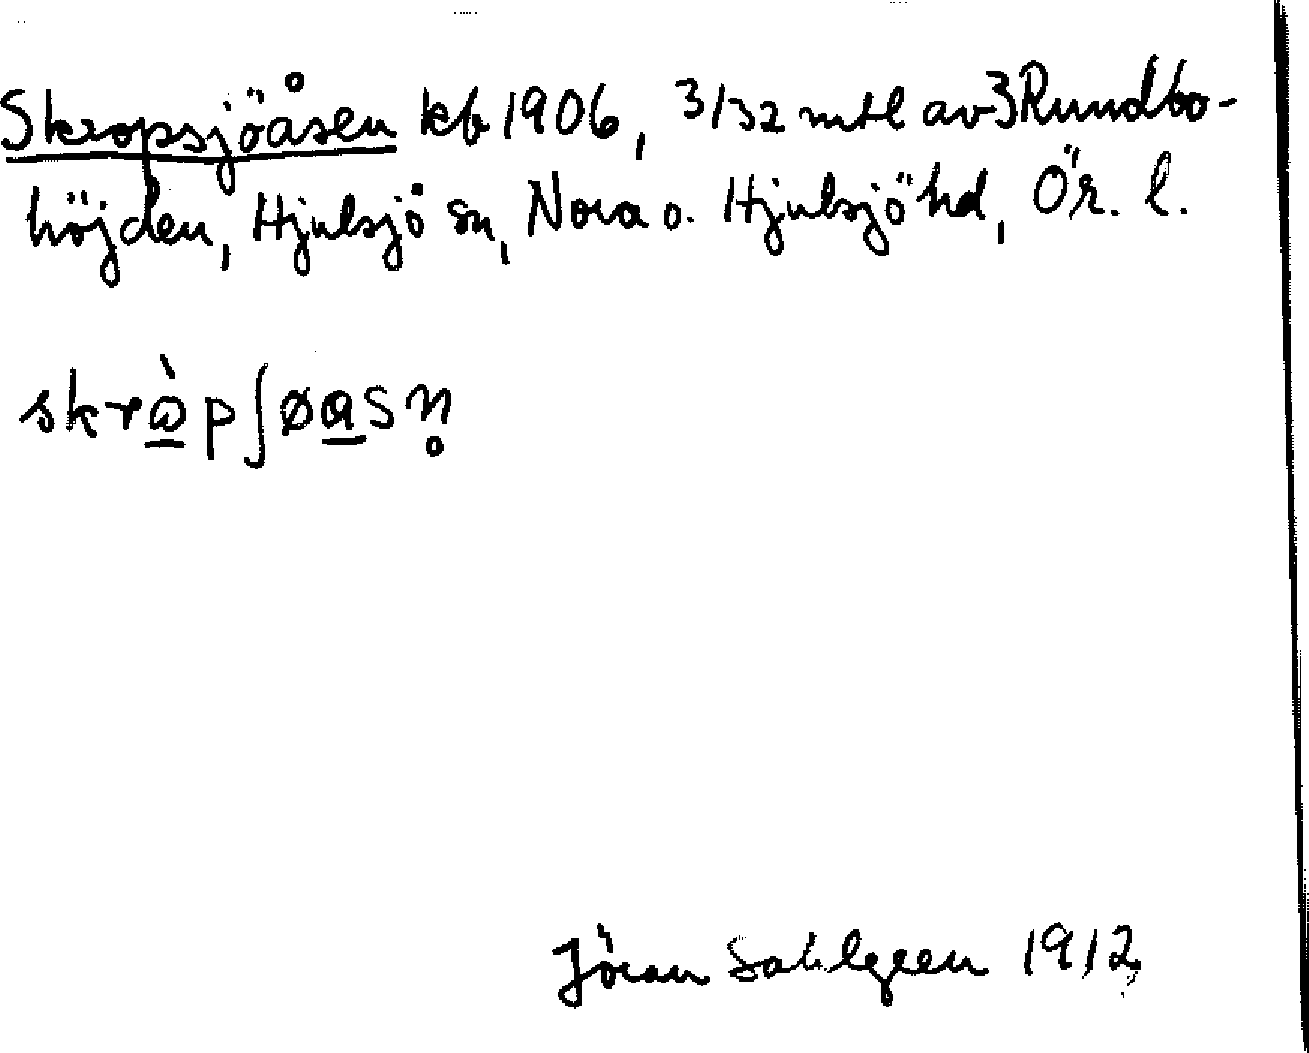 Skropsjöåsen kb 1906, 3/32 mtl av 3 Rundbo-
höjden, Hjulsjö sn, Nora o. Hjulsjö hd, Ör. l.
skrὼ̲pʃøa̲sn̥
Jöran Sahlgren 1912